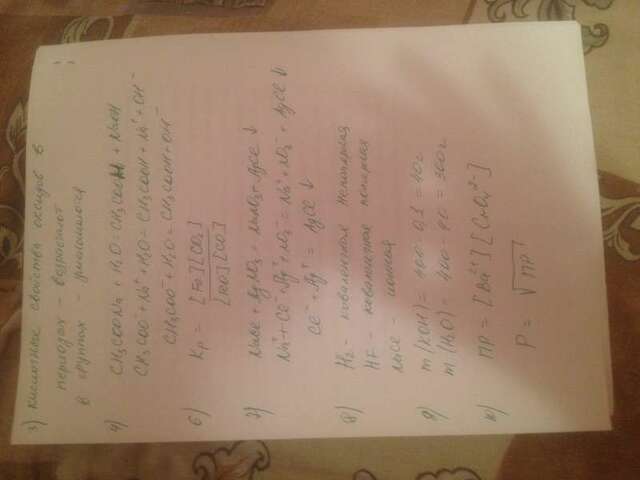 3) Кислотные свойства оксидов в
периодах - возрастают
в группах - уменьшаются
4) CH₃COONa + H₂O = CH₃COOH + NaOH
CH₃COO⁻ + Na⁺ + H₂O = CH₃COOH + Na⁺ + OH⁻
CH₃COO⁻ + H₂O = CH₃COOH + OH⁻
6) Kp = [Fe][CO₂]
[FeO][CO]
7) NaCl + AgNO₃ = NaNO₃ + AgCl ↓
Na⁺ + Cl⁻ + Ag⁺ + NO₃⁻ = Na⁺ + NO₃⁻ + AgCl ↓
Cl⁻ + Ag⁺ = AgCl ↓
8) H₂ - ковалентная неполярная
HF - ковалентная полярная
NaCl - ионная
9) m(KOH) = 400 · 0,1 = 40г
m(H₂O) = 400 - 40 = 300г
10) ПР = [Ba²⁺][CrO₄²⁻]
P = √ПР